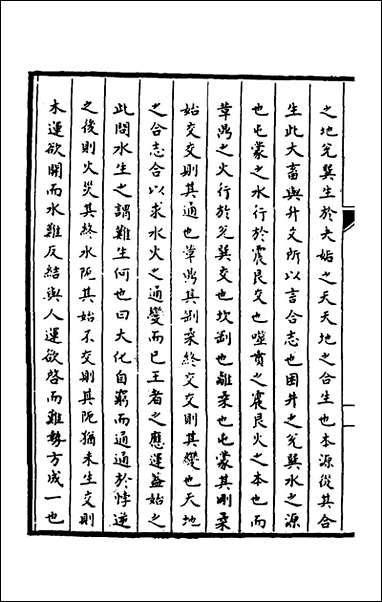 之地兌巽生於夬姤之天天地之合生也本源從其合
生此大畜與升交所以言合志也困井之兌巽水之源
也屯蒙之水行於震艮交也噬賁之震艮火之本也而
革鼎之火行於兌巽交也坎剛也離柔也屯蒙其剛柔
始交交則其通也革鼎其剛柔終交交則其變也天地
之合志合以求水火之通變而已王者之應運蓋始之
此問水生之謂難生何也曰大化自窮而通通於悖逆
之後則火災其終水阨其始不交則其阨猶未生交則
木運欲開而水難反結與人運欲啓而難勢方成一也